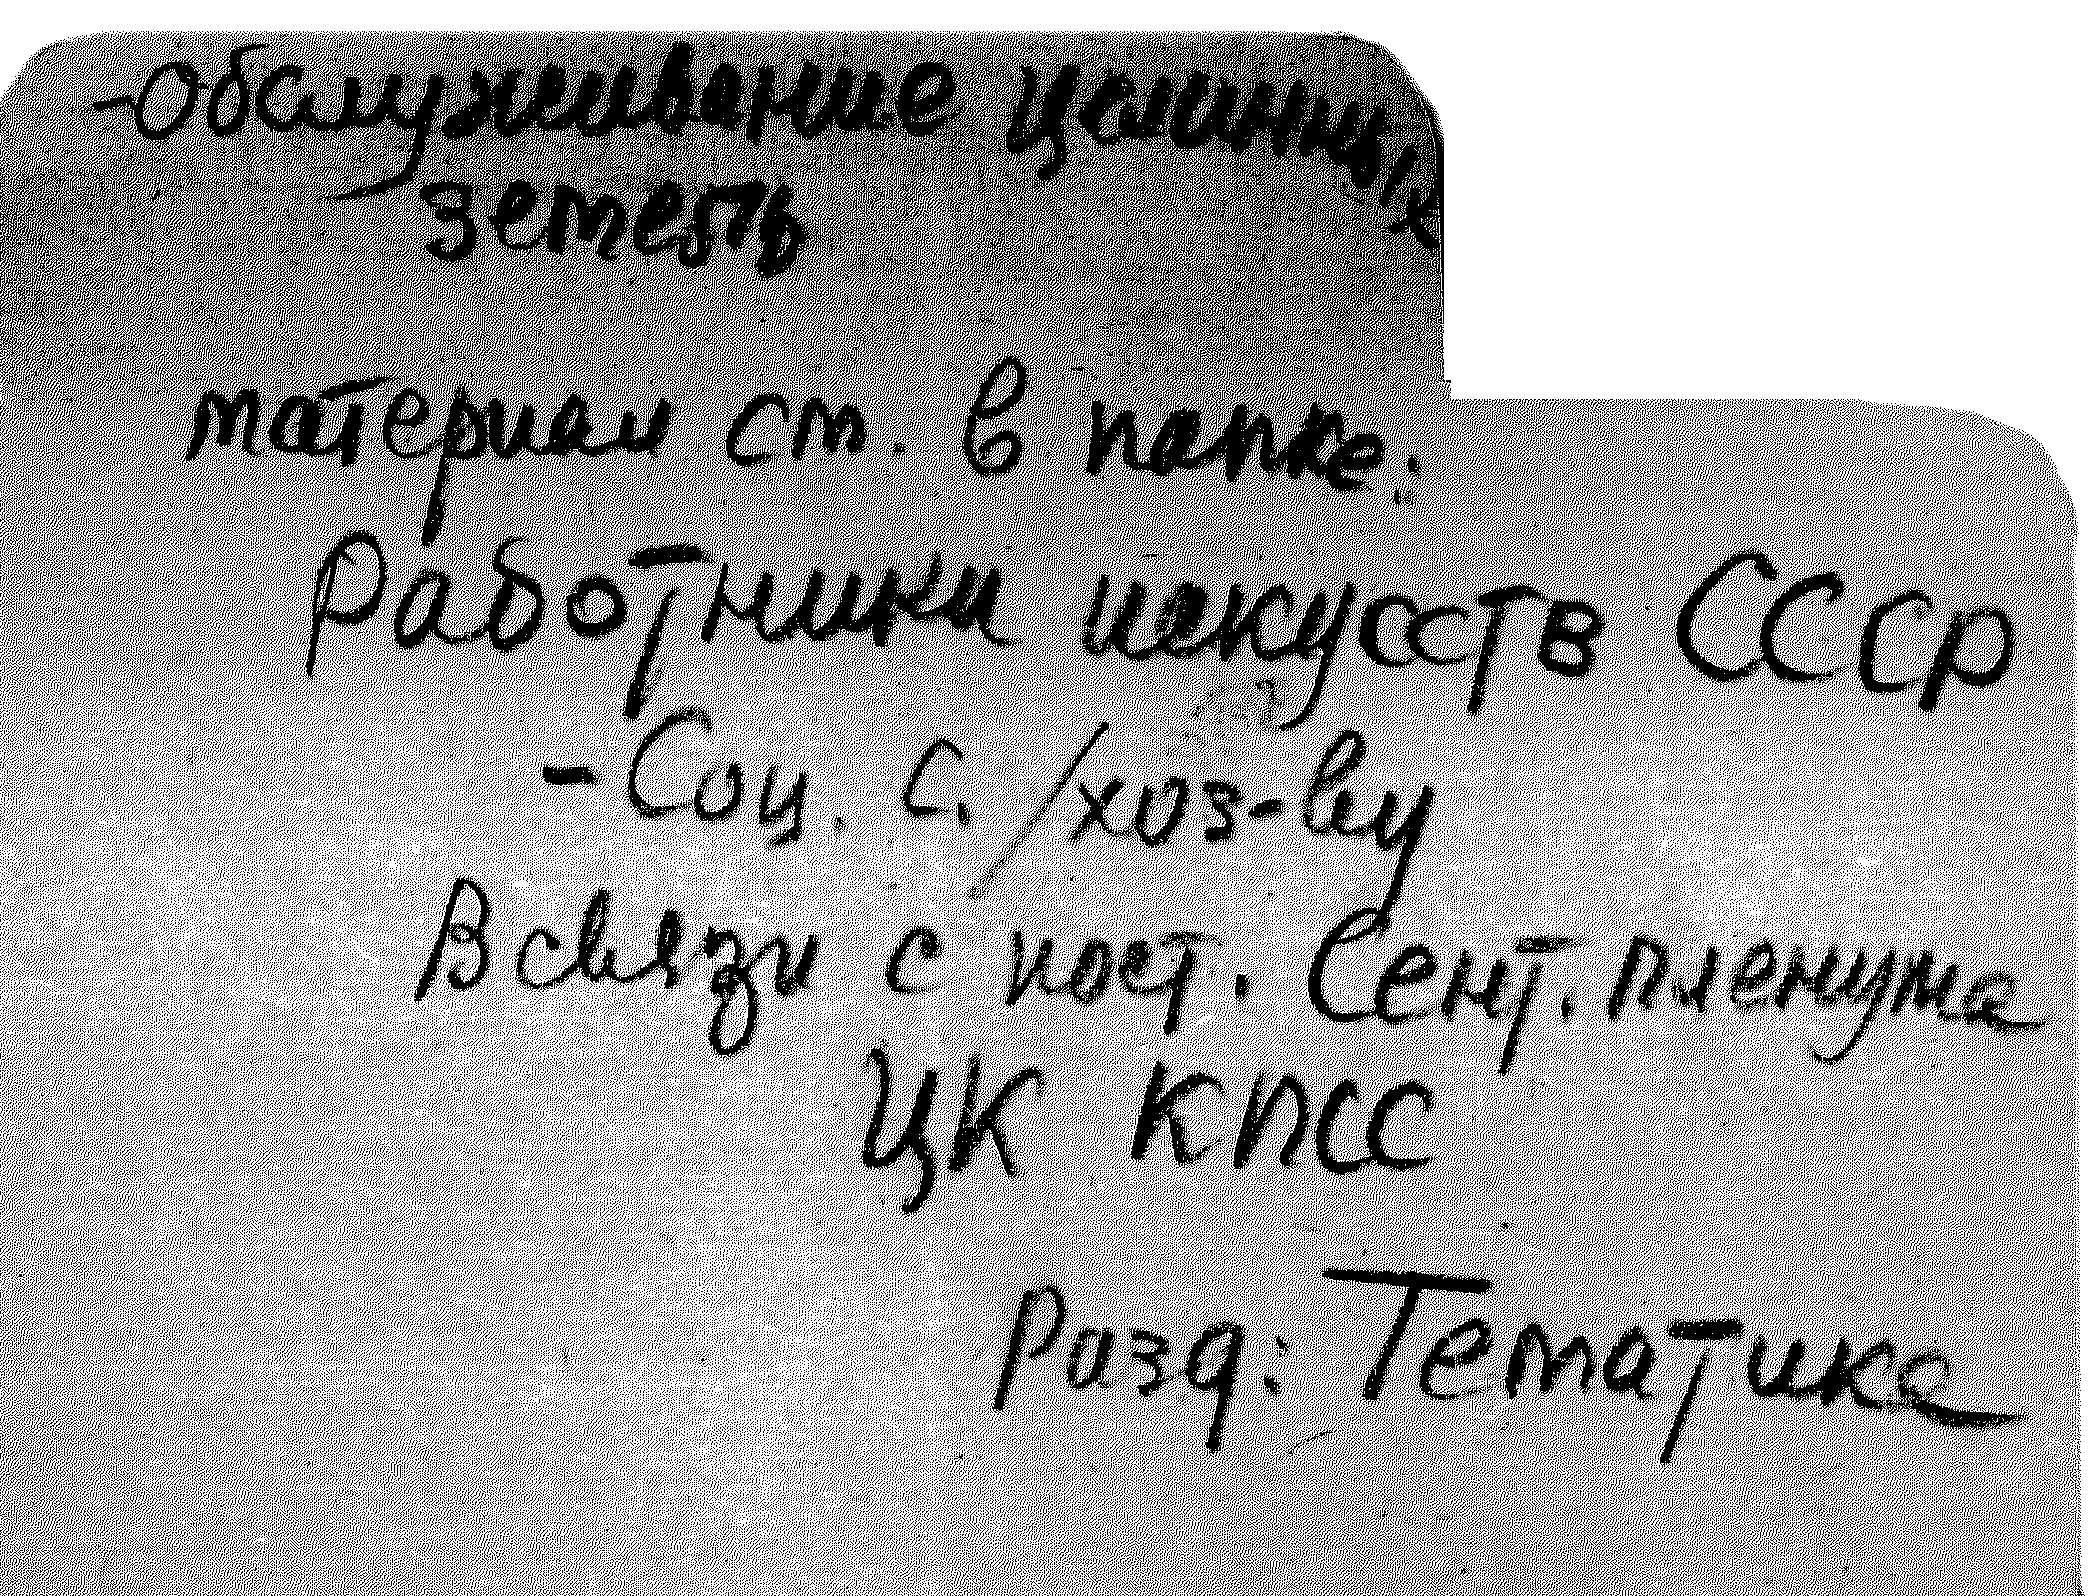 -Обслуживание целинных
земель
материал см. в папке:
Работники искусств СССР
- Соц. с./хоз-ву
В связи с пост. Сент. пленума
ЦК КПСС
Разд: Тематика